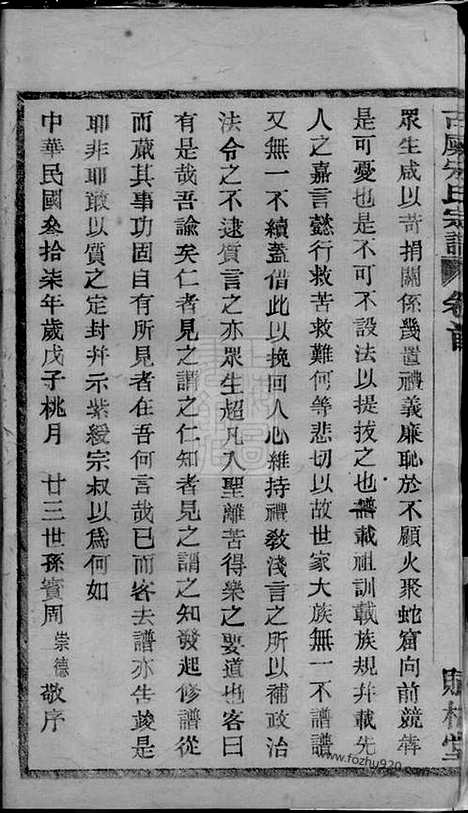 眾生咸以苛捐關係幾置禮義廉恥於不顧火聚蛇窟向前競犇
是可憂也是不可不設法以提拔之也譜載祖訓載族規并載先
人之嘉言懿行救苦救難何等悲切以故世家大族無一不譜譜
又無一不續蓋借此以挽回人心維持禮敎淺言之所以補政治
法令之不逮質言之亦眾生超凡入聖離苦得樂之要道也客曰
有是哉吾諭矣仁者見之謂之仁知者見之謂之知發起修譜從
而蕆其事功固自有所見者在吾何言哉已而客去譜亦告竣是
耶非耶叢以質之定封并示紫緩宗叔以爲何如
中華民國叁拾柒年歲戊子桃月 廿三世孫賓周崇德敬序
氏宗譜 卷首
堂
www.fozhu920.com